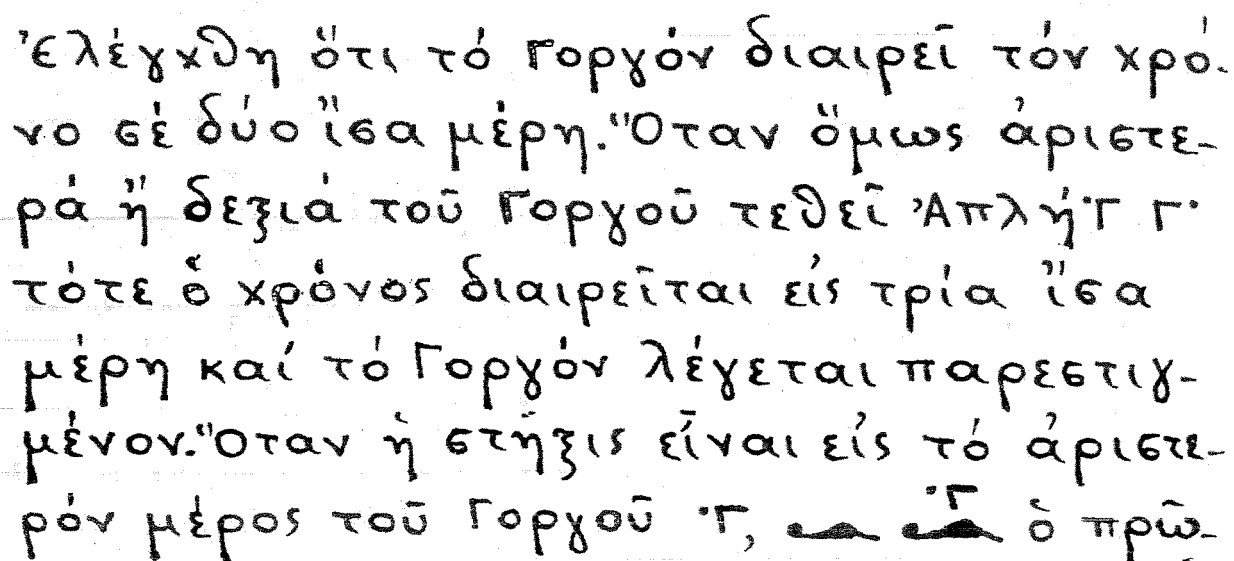 Ἐλέγχθη ὅτι τό Γοργόν διαιρεῖ τόν χρό-
νο σέ δύο ἴσα μέρη. Ὅταν ὅμως ἀριστε-
ρά ἤ δεξιά τοῦ Γοργοῦ τεθεῖ Ἁπλή ·Γ Γ·
τότε ὁ χρόνος διαιρεῖται εἰς τρία ἴσα
μέρη καί τό Γοργόν λέγεται παρεστιγ-
μένον. Ὅταν ἡ στήξις εἶναι εἰς τό ἀριστε-
ρόν μέρος τοῦ Γοργοῦ ·Γ, ·Γ ὁ πρῶ-